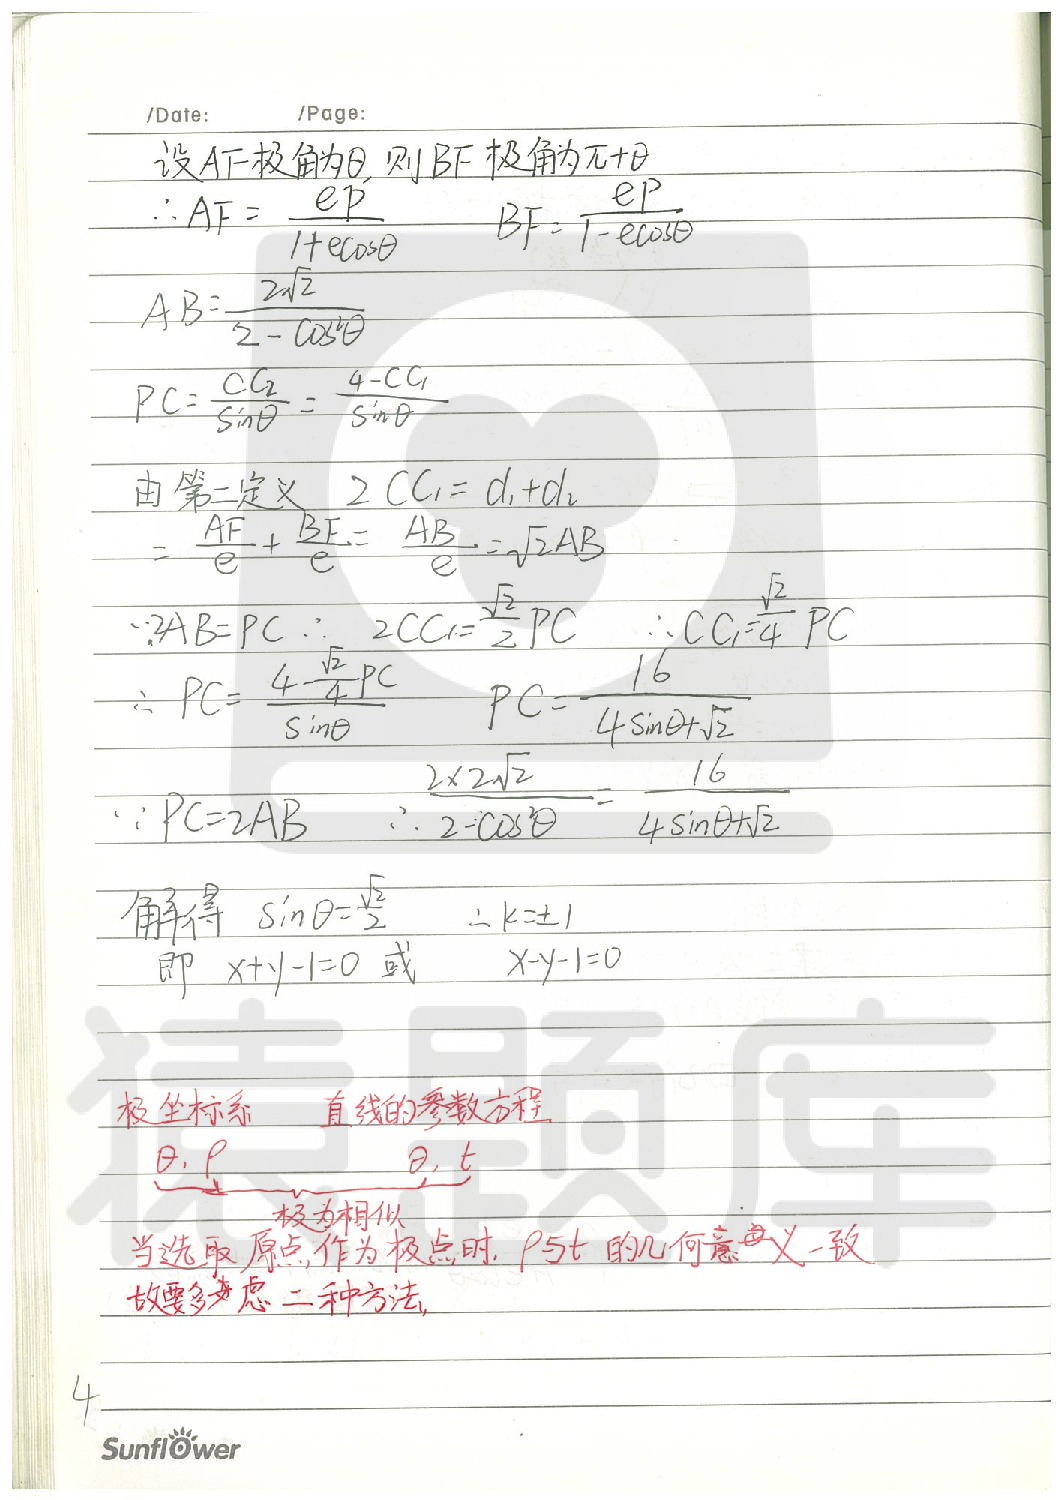 /Date: /Page:
设AF极角为θ,则BF极角为π+θ
∴AF=ep/(1+ecosθ) BF=ep/(1-ecosθ)
AB=2√2/(2-cos²θ)
PC=CC₂/sinθ=(4-CC₁)/sinθ
由第二定义 2CC₁=d₁+d₂
=AF/e+BF/e=AB/e=√2AB
∵2AB=PC ∴ 2CC₁=√2/2 PC ∴CC₁=√2/4 PC
∴ PC=(4-√2/4 PC)/sinθ PC=16/(4sinθ+√2)
∵PC=2AB ∴ 2×2√2/(2-cos²θ)=16/(4sinθ+√2)
解得 sinθ=√2/2 ∴k=±1
即 x+y-1=0 或 x-y-1=0
极坐标系 直线的参数方程
θ,ρ θ,t
极为相似
当选取原点作为极点时,ρ与t的几何意义一致
故要多考虑二种方法,
4
Sunflower
猿题库